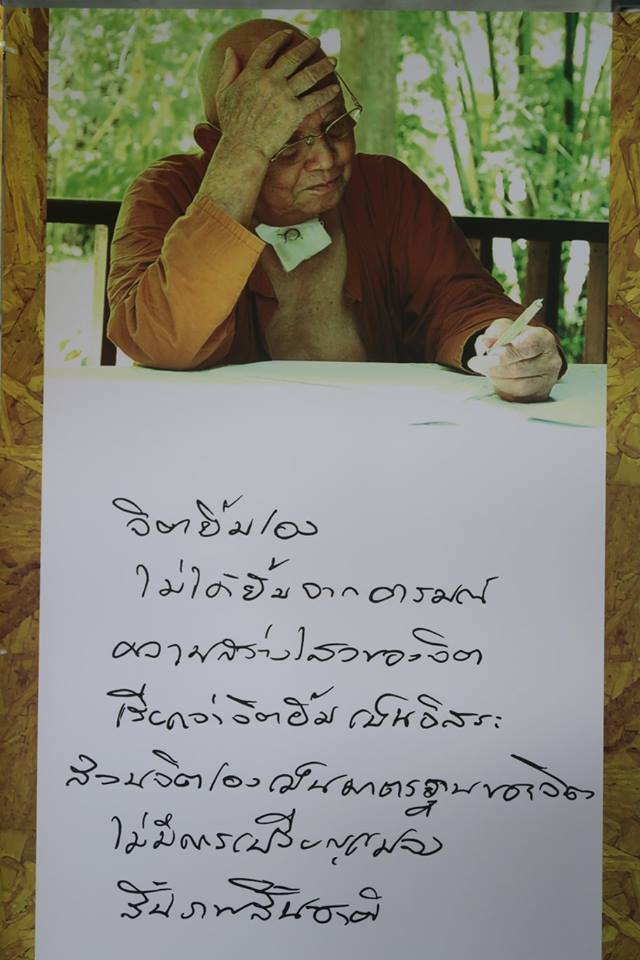 จิตยิ้มเอง
ไม่ได้ยิ้มจากอารมณ์
ความสว่างไสวของจิต
เรียกว่าจิตยิ้มเป็นอิสระ
ส่วนจิตเองเป็นมาตรฐานของจิต
ไม่มีการเปลี่ยนแปลง
สิ้นภพสิ้นชาติ